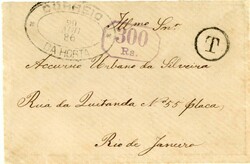 CORREIO
86
DA HORTA
300
Rs.
T
Illmo Snr
Accurcio Urbano da Silveira
Rua da Quitanda Nº 55 placa,
Rio de Janeiro